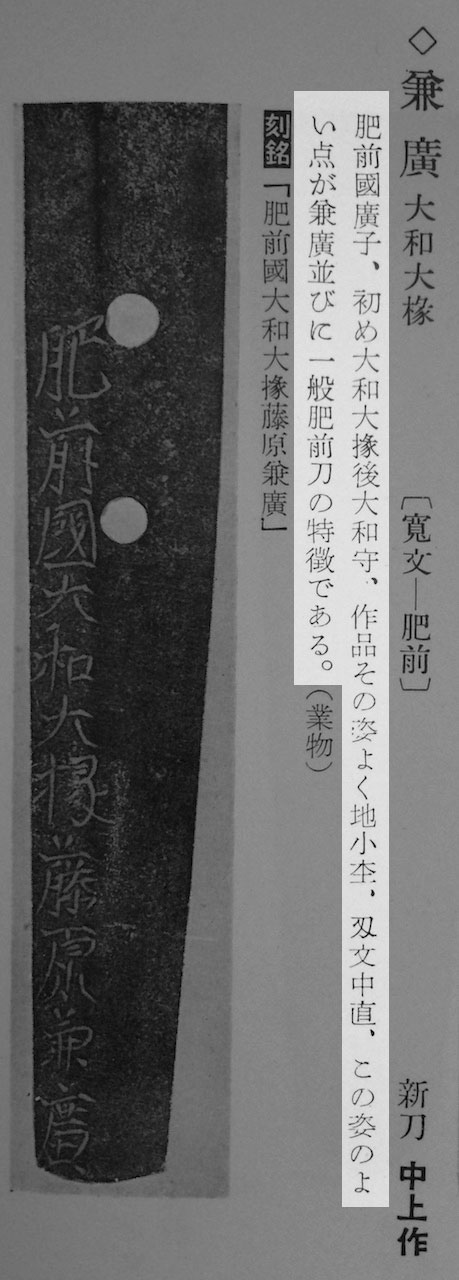 ◇兼廣 大和大掾 〔寬文―肥前〕 新刀 中上作
肥前國廣子、初め大和大掾後大和守、作品その姿よく地小杢、刄文中直、この姿のよ
い点が兼廣並びに一般肥前刀の特徴である。（業物）
刻銘「肥前國大和大掾藤原兼廣」
肥前國大和大掾藤原兼廣